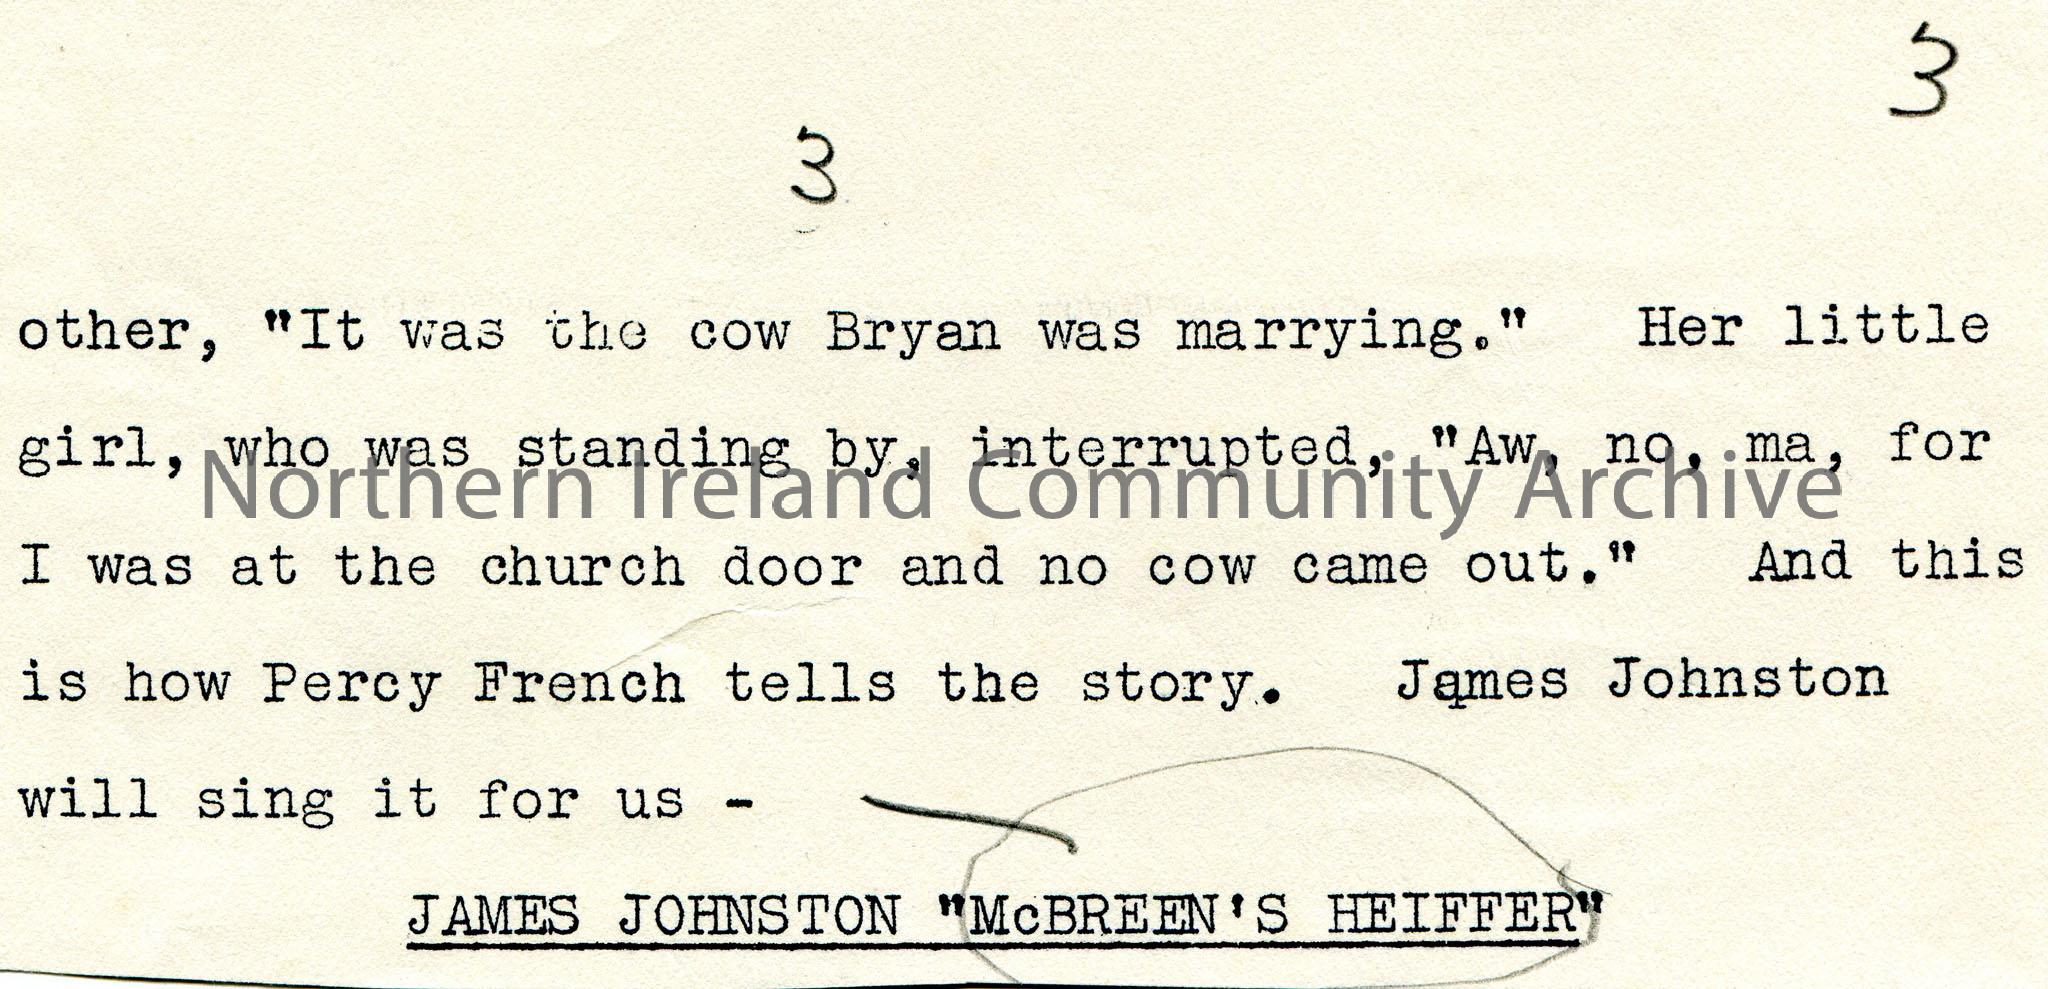 3
3
other, "It was the cow Bryan was marrying."   Her little
girl, who was standing by, interrupted, "Aw, no, ma, for
Northern Ireland Community Archive
I was at the church door and no cow came out."   And this
is how Percy French tells the story.   James Johnston
will sing it for us -
JAMES JOHNSTON "McBREEN'S HEIFFER"